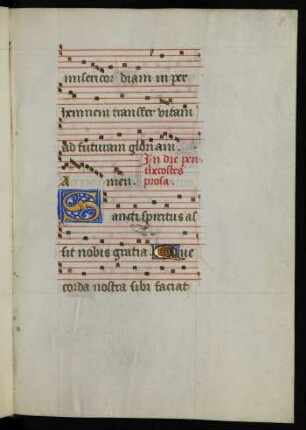 misericor diam in per
hennem transfer vitam
ad futuram gloriam.
In die pen
thecostes
A men. prosa.
Sancti spiritus as
sit nobis gratia Que
corda nostra sibi faciat